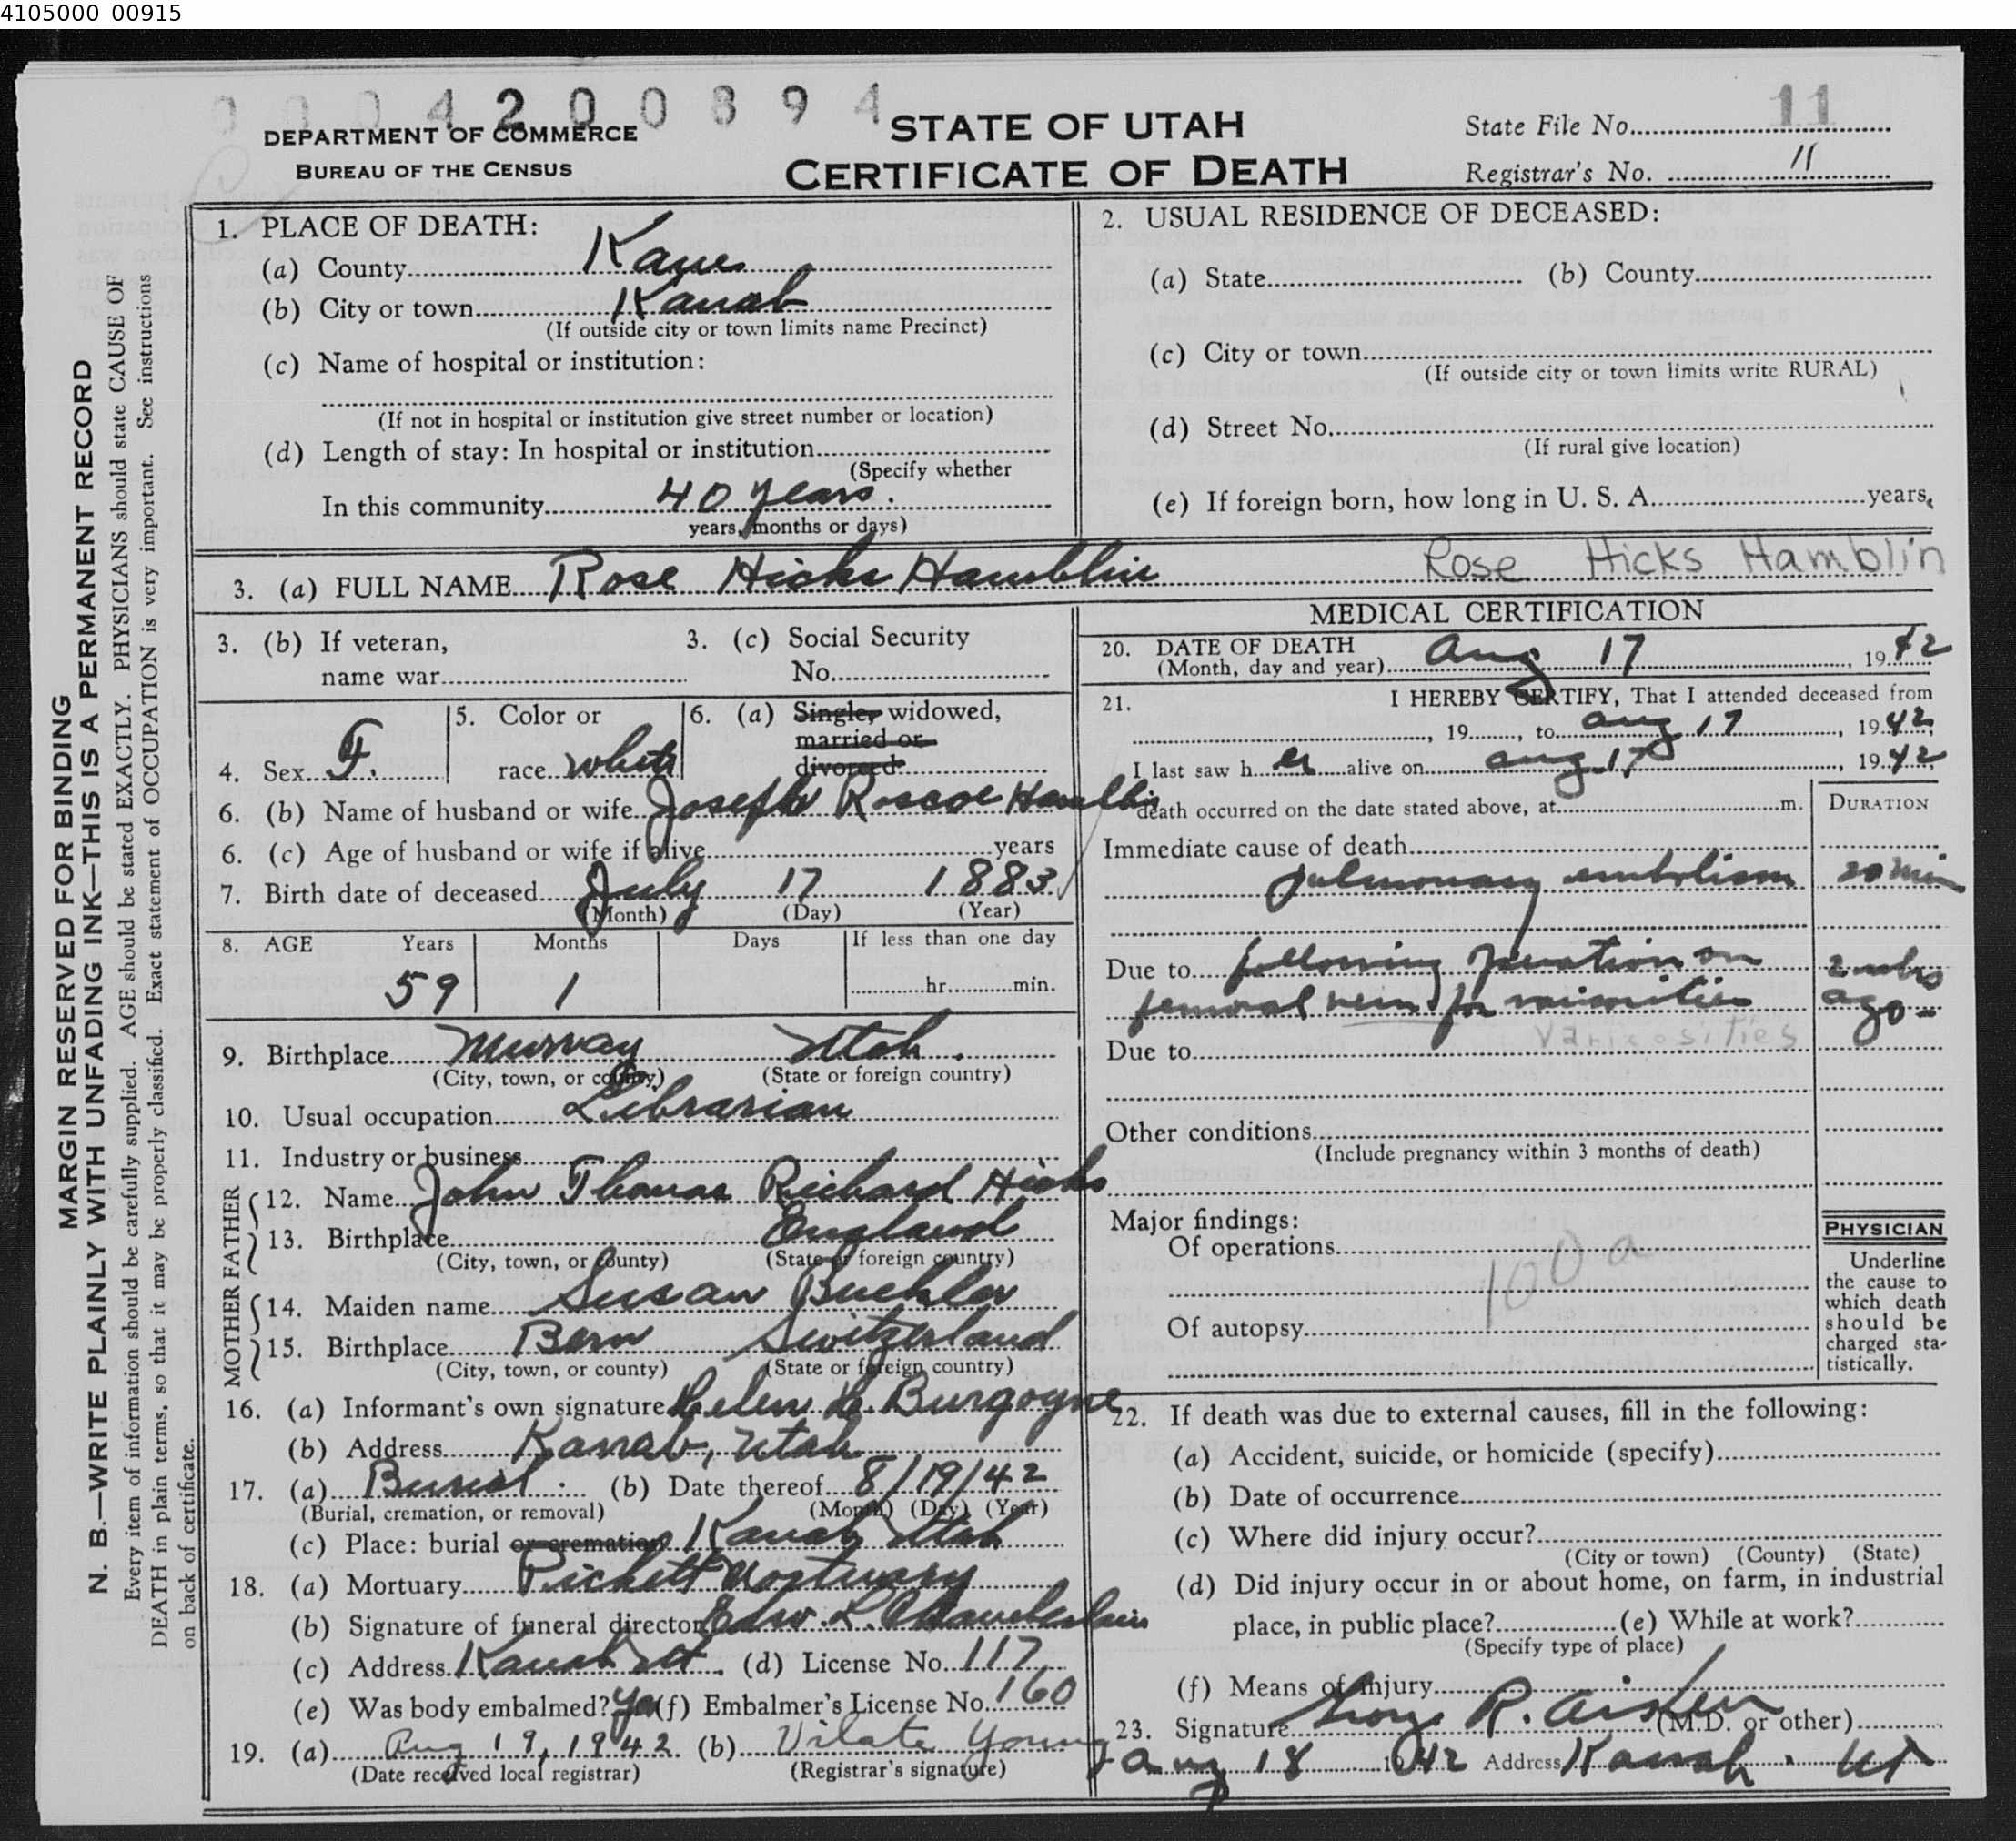 4105000_00915
0004200894
DEPARTMENT OF COMMERCE
BUREAU OF THE CENSUS
STATE OF UTAH
CERTIFICATE OF DEATH
State File No. 11
Registrar's No. 11
MARGIN RESERVED FOR BINDING
N. B.—WRITE PLAINLY WITH UNFADING INK—THIS IS A PERMANENT RECORD
Every item of information should be carefully supplied. AGE should be stated EXACTLY. PHYSICIANS should state CAUSE OF
DEATH in plain terms, so that it may be properly classified. Exact statement of OCCUPATION is very important. See instructions
on back of certificate.
1. PLACE OF DEATH:
(a) County Kane
(b) City or town Kanab
(If outside city or town limits name Precinct)
(c) Name of hospital or institution:
(If not in hospital or institution give street number or location)
(d) Length of stay: In hospital or institution
(Specify whether
In this community 40 years.
years, months or days)
2. USUAL RESIDENCE OF DECEASED:
(a) State (b) County
(c) City or town
(If outside city or town limits write RURAL)
(d) Street No.
(If rural give location)
(e) If foreign born, how long in U. S. A. years.
3. (a) FULL NAME Rose Hicks Hamblin Rose Hicks Hamblin
3. (b) If veteran, name war
3. (c) Social Security No.
4. Sex F.
5. Color or race white
6. (a) Single, widowed, married or divorced
6. (b) Name of husband or wife Joseph Roscoe Hamblin
6. (c) Age of husband or wife if alive years
7. Birth date of deceased July 17 1883
(Month) (Day) (Year)
8. AGE Years Months Days If less than one day
59 1 hr. min.
9. Birthplace Murray Utah.
(City, town, or county) (State or foreign country)
10. Usual occupation Librarian
11. Industry or business
FATHER
12. Name John Thomas Richard Hicks
13. Birthplace England
(City, town, or county) (State or foreign country)
MOTHER
14. Maiden name Susan Buehler
15. Birthplace Bern Switzerland
(City, town, or county) (State or foreign country)
16. (a) Informant's own signature Helen H. Burgoyne
(b) Address Kanab, Utah
17. (a) Burial. (b) Date thereof 8/19/42
(Burial, cremation, or removal) (Month) (Day) (Year)
(c) Place: burial or cremation Kanab Utah
18. (a) Mortuary Pickett Mortuary
(b) Signature of funeral director Edw. L. Chamberlain
(c) Address Kanab Ut. (d) License No. 117
(e) Was body embalmed? Yes (f) Embalmer's License No. 160
19. (a) Aug 19, 1942. (b) Vilate Young
(Date received local registrar) (Registrar's signature)
MEDICAL CERTIFICATION
20. DATE OF DEATH
(Month, day and year) Aug 17, 1942
21. I HEREBY CERTIFY, That I attended deceased from
, 19 , to Aug 17, 1942
I last saw h er alive on Aug 17, 1942
death occurred on the date stated above, at m. DURATION
Immediate cause of death
pulmonary embolism 20 min
Due to following operation on 2 mths
femoral vein for varicosities ago
varixosities
Due to
Other conditions
(Include pregnancy within 3 months of death)
Major findings:
Of operations
100 a
Of autopsy
PHYSICIAN
Underline
the cause to
which death
should be
charged sta-
tistically.
22. If death was due to external causes, fill in the following:
(a) Accident, suicide, or homicide (specify)
(b) Date of occurrence
(c) Where did injury occur?
(City or town) (County) (State)
(d) Did injury occur in or about home, on farm, in industrial
place, in public place? (e) While at work?
(Specify type of place)
(f) Means of injury
23. Signature George R. Aiken (M.D. or other)
Aug 18 1942 Address Kanab. UT